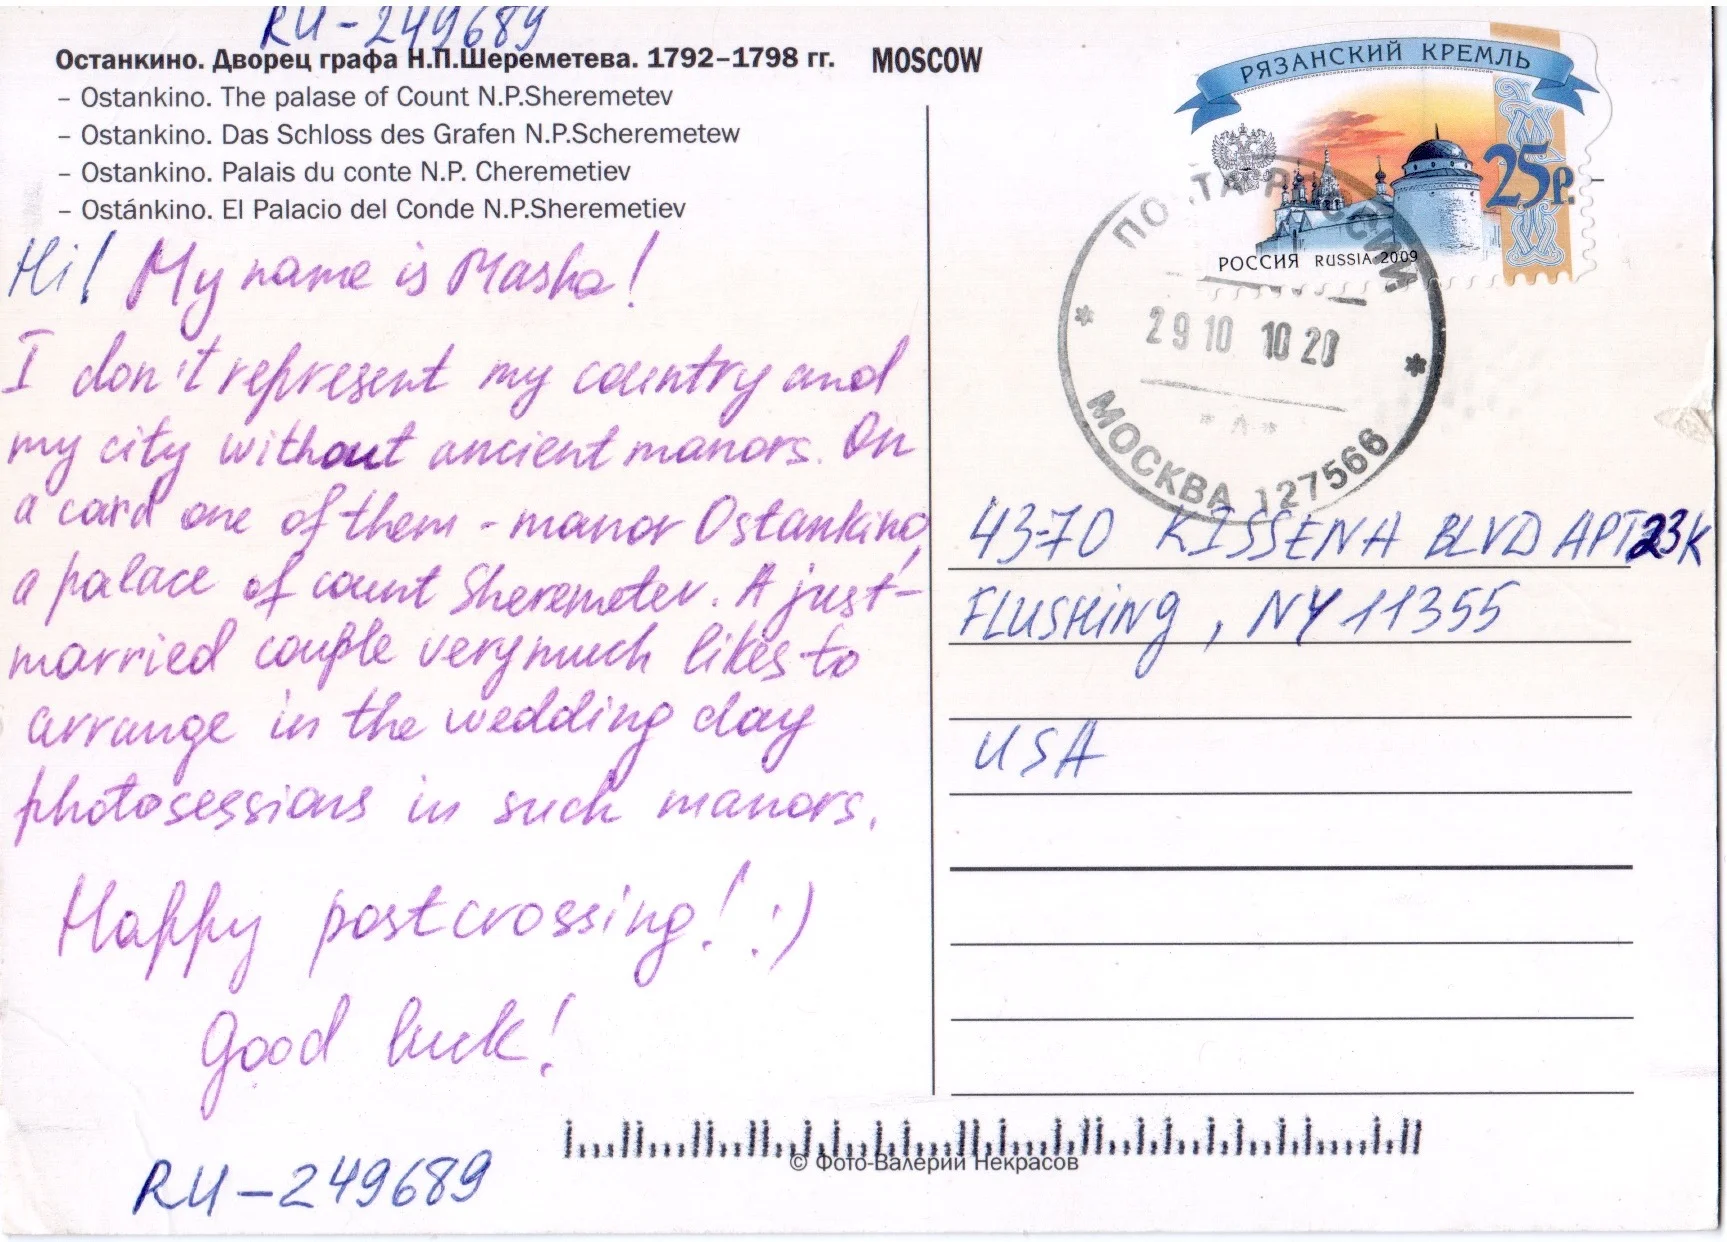 RU-249689
Останкино. Дворец графа Н.П.Шереметева. 1792–1798 гг. MOSCOW
– Ostankino. The palase of Count N.P.Sheremetev
– Ostankino. Das Schloss des Grafen N.P.Scheremetew
– Ostankino. Palais du conte N.P. Cheremetiev
– Ostánkino. El Palacio del Conde N.P.Sheremetiev
Hi! My name is Masha!
I don't represent my country and
my city without ancient manors. On
a card one of them - manor Ostankino,
a palace of count Sheremetev. A just-
married couple very much likes to
arrange in the wedding day
photosessions in such manors.
Happy postcrossing! :)
Good luck!
RU-249689
РЯЗАНСКИЙ КРЕМЛЬ
25р.
РОССИЯ RUSSIA 2009
ПОЧТА РОССИИ
29 10 10 20
* Л *
МОСКВА 127566
43-70 KISSENA BLVD APT 23K
FLUSHING, NY 11355
USA
© Фото-Валерий Некрасов